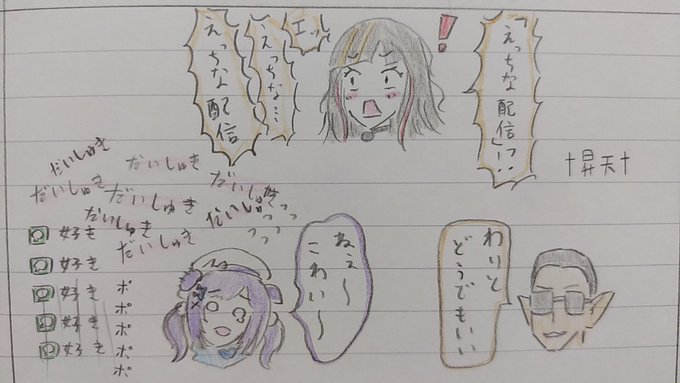 「えっちな
配信」っ!?
!
エっ
えっちな…
えっちな
配信
†昇天†
だいしゅき
だいしゅき
だいしゅき
だいしゅき
だいしゅき
だいしゅき
だいしゅきっ
だいしゅきっっっ
好き
好き
好き
好き
好き
ポ
ポ
ポ
ポ
ポ
ねぇ〜
こわい〜
わりと
どうでもいい